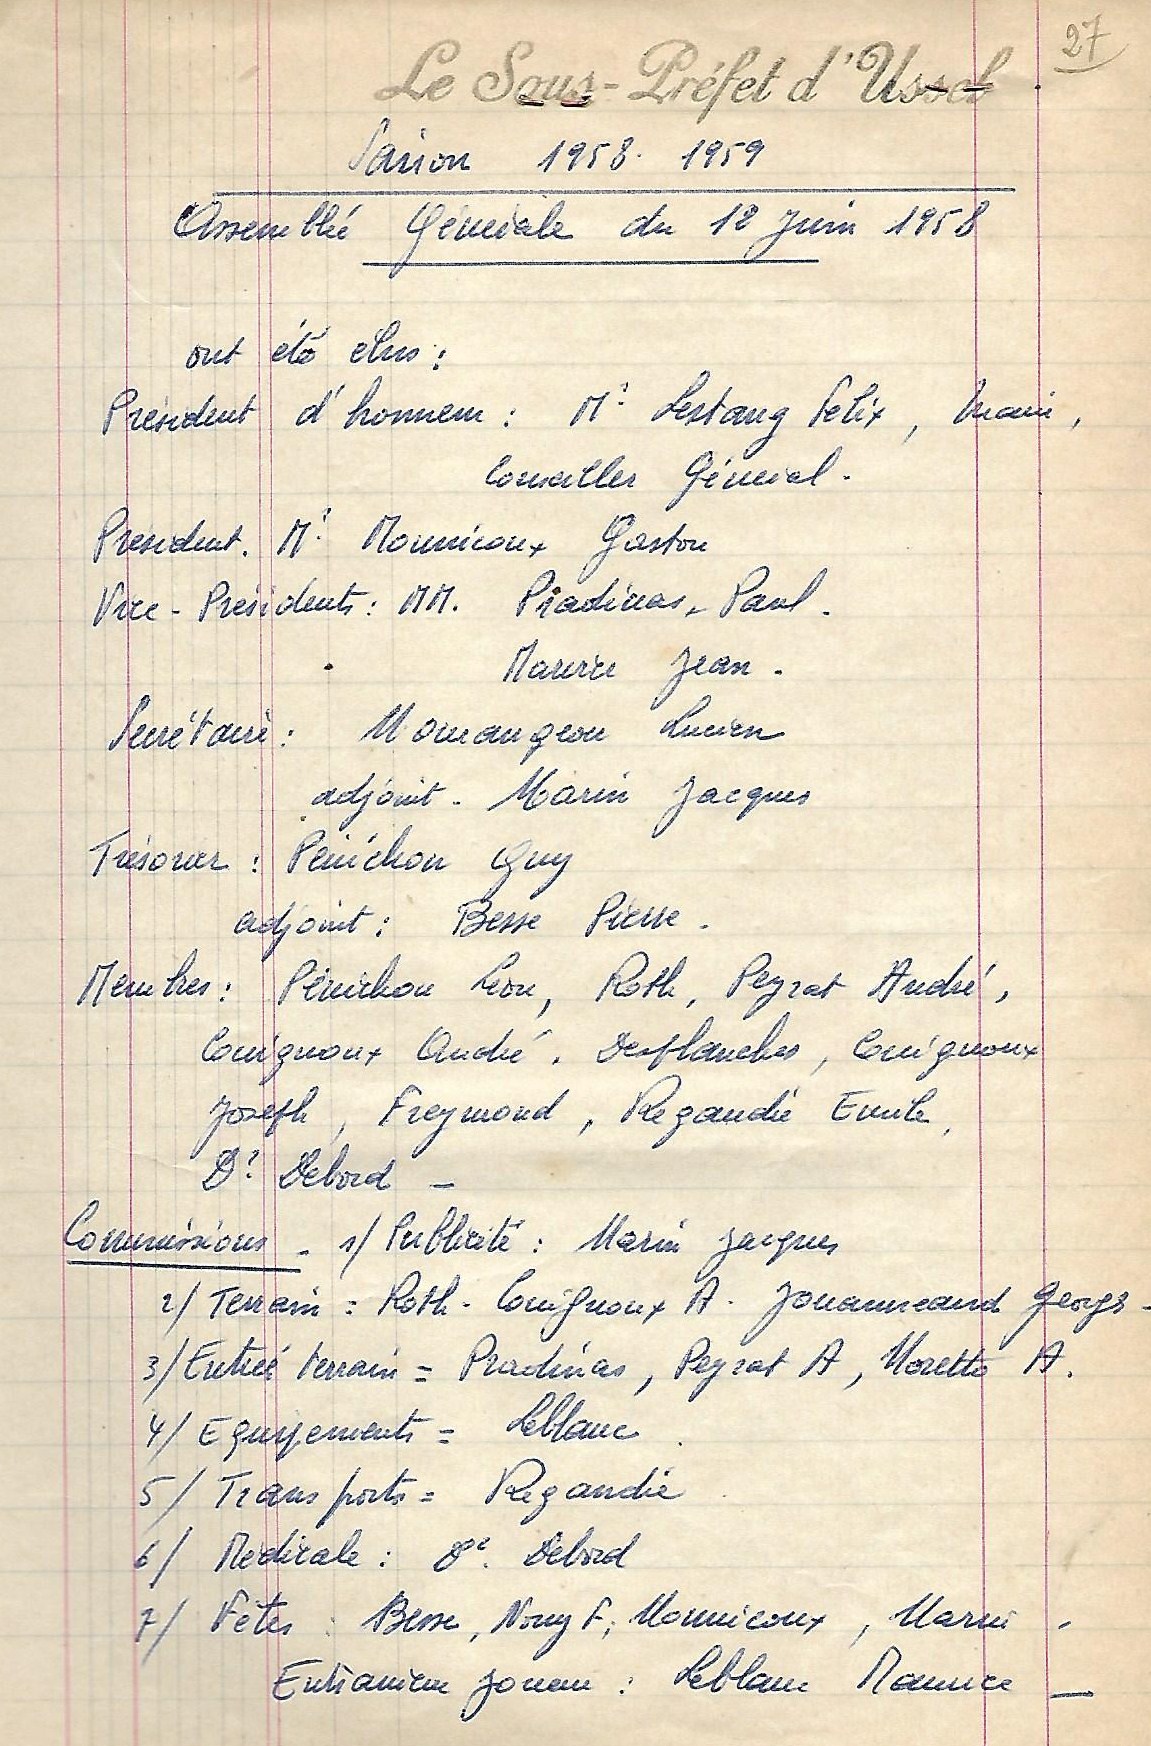 27
Le Sous-Préfet d'Ussel
Saison 1958. 1959
Assemblée Générale du 12 Juin 1958
ont été élus :
Président d'honneur : Mr Lestang Félix, Maire,
Conseiller Général.
Président. Mr Monnicoux Gaston
Vice-Présidents : MM. Pradinas, Paul.
Jean.
Secrétaire : Lucien
adjoint. Marin Jacques
Trésorier : Pénichon Guy
adjoint : Besse Pierre.
Membres : Pénichon Léon, Roth, Peyrat André,
Couignoux André. Desplanches, Couignoux
Joseph, Freymond, Regaudie Emile,
Dr Debord _
Commissions - 1/ Publicité : Marin Jacques
2/ Terrain = Roth - Couignoux A. Jouanneaud Georges -
3/ Entrée terrain = Pradinas, Peyrat A, Moretto A.
4/ Equipements = Leblanc
5/ Transports = Regaudie
6/ Médicale : Dr. Debord
7/ Fêtes : Besse, Nouy F, Monnicoux, Marin -
Entraineur joueur : Leblanc Maurice _